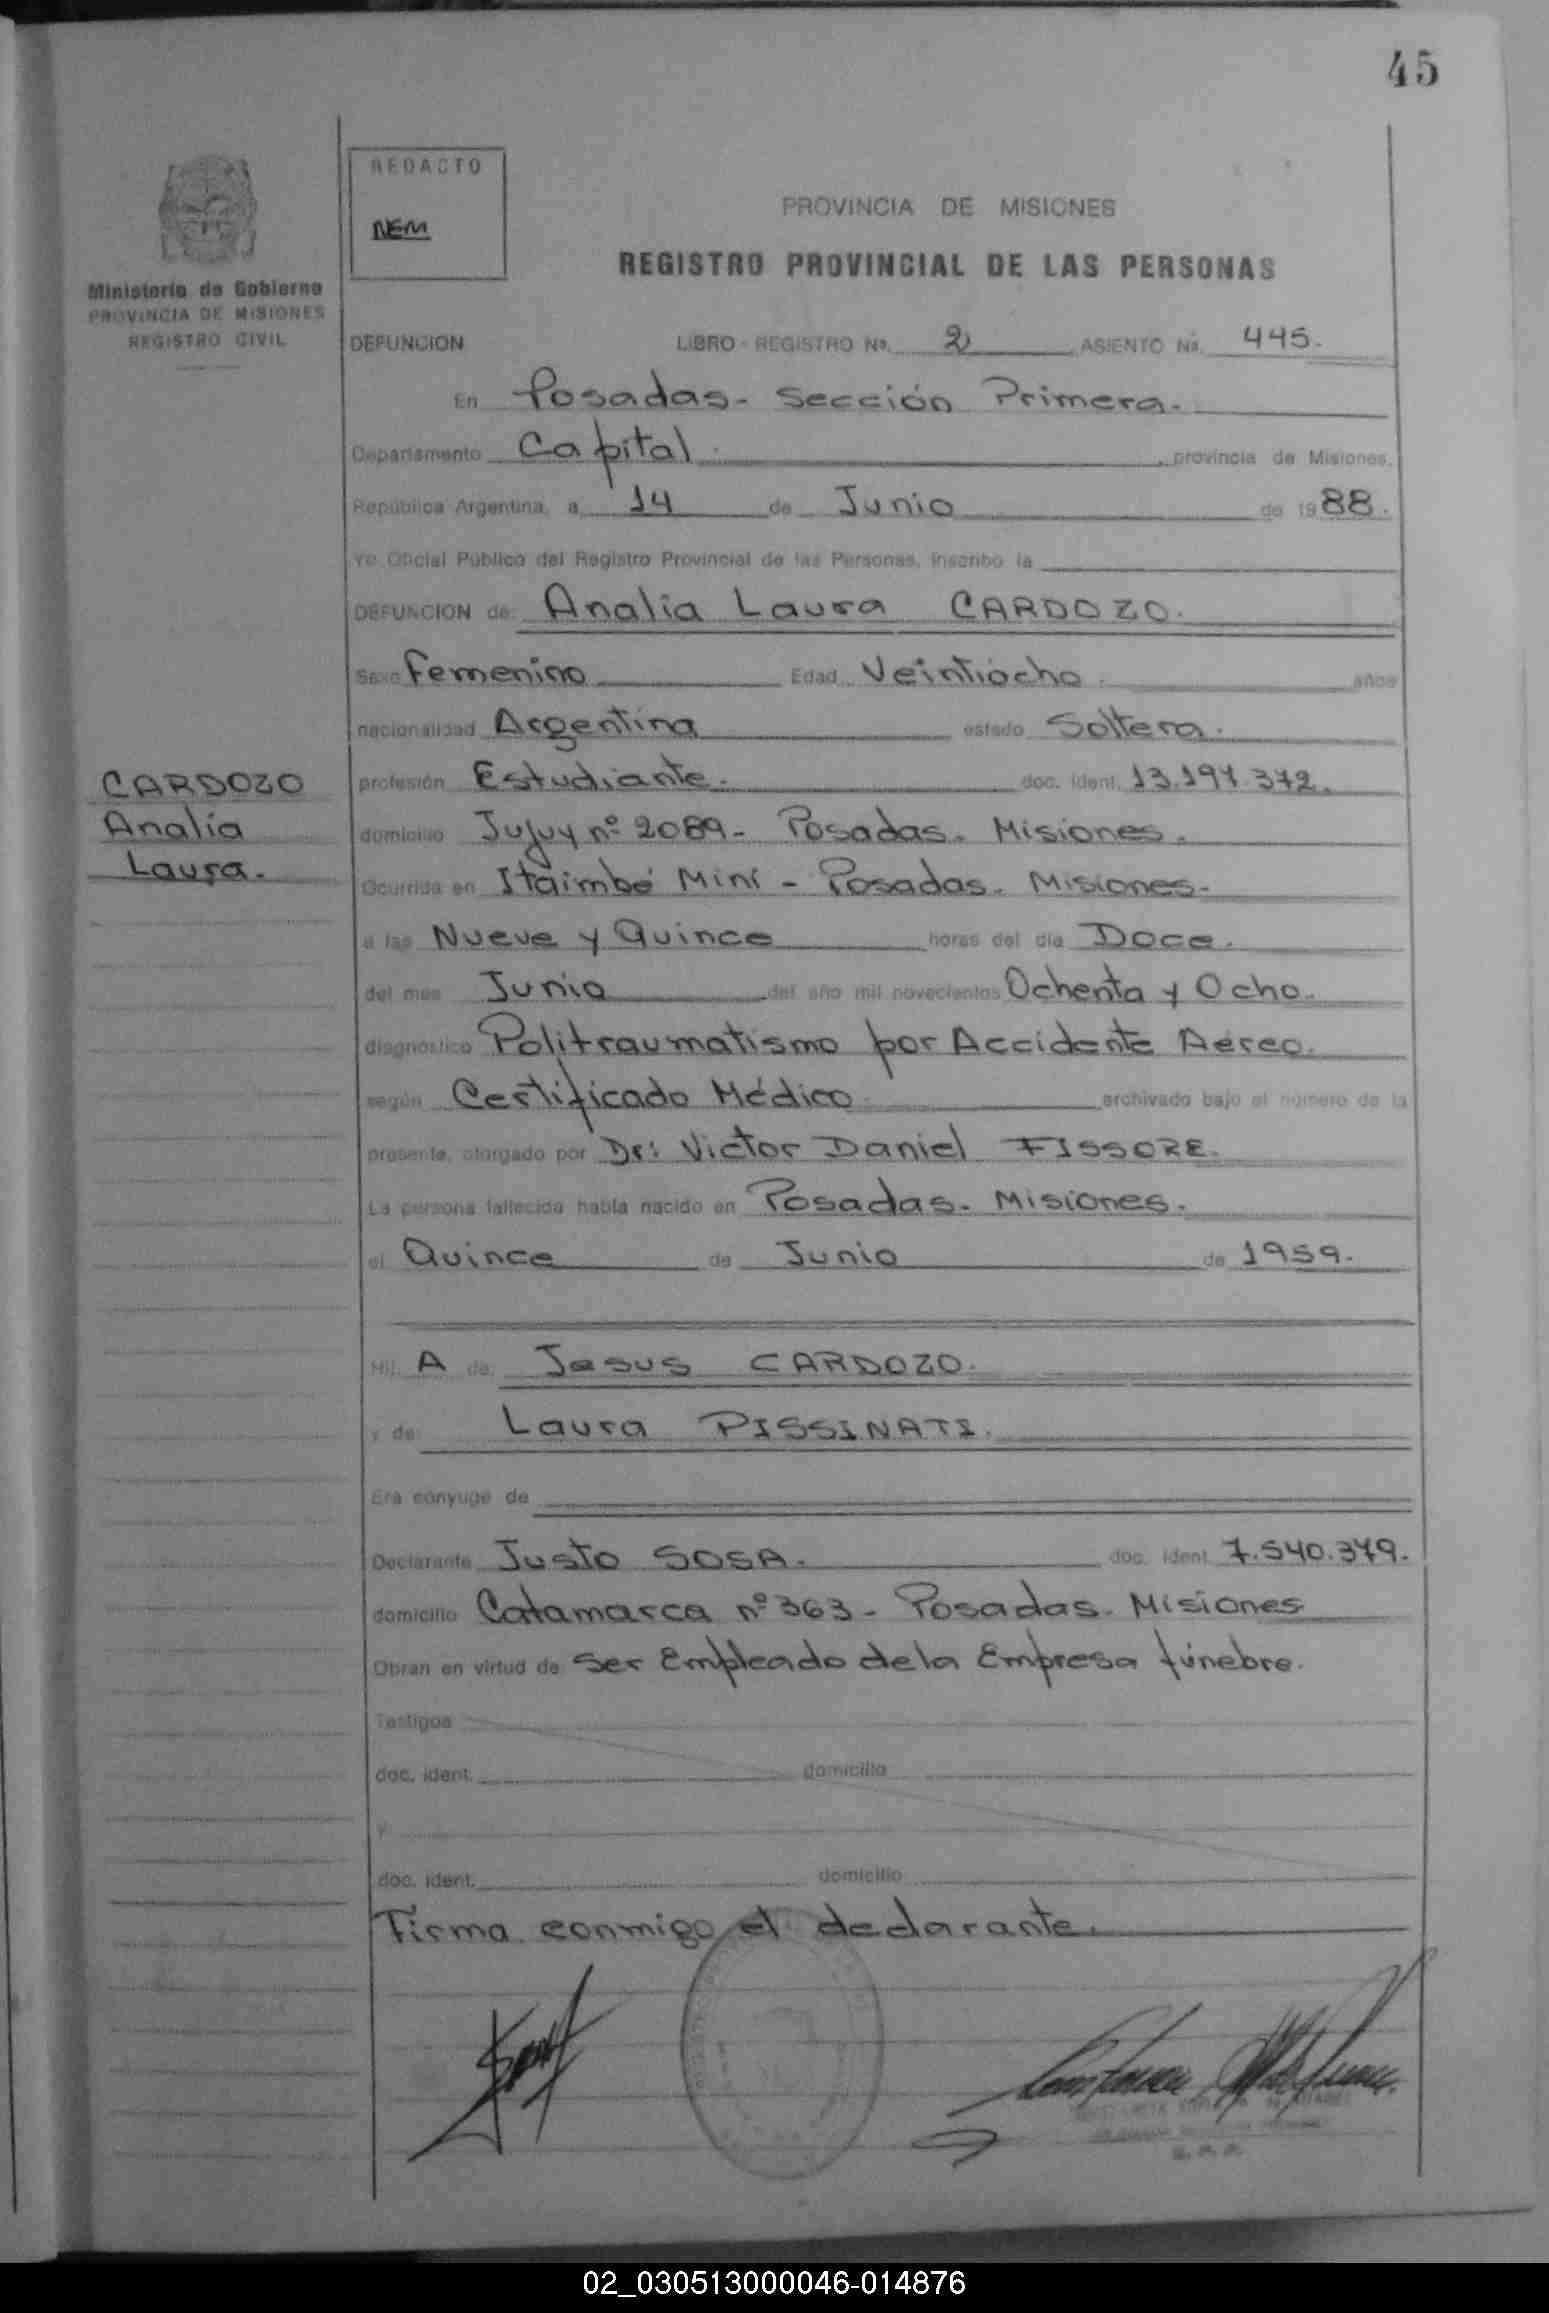 45
REDACTO
NEM
PROVINCIA DE MISIONES
REGISTRO PROVINCIAL DE LAS PERSONAS
Ministerio de Gobierno
PROVINCIA DE MISIONES
REGISTRO CIVIL
DEFUNCION LIBRO - REGISTRO No. 2 ASIENTO No. 445.
En Posadas- Sección Primera.
Departamento Capital. , provincia de Misiones,
República Argentina, a 14 de Junio de 1988.
Yo Oficial Público del Registro Provincial de las Personas, inscribo la
DEFUNCION de: Analía Laura CARDOZO.
Sexo Femenino Edad Veintiocho. años
nacionalidad Argentina estado Soltera.
profesión Estudiante. doc. ident. 13.197.372.
domicilio Jujuy nº 2089- Posadas. Misiones.
Ocurrida en Itaimbé Miní - Posadas. Misiones.
a las Nueve y Quince horas del día Doce.
del mes Junio del año mil novecientos Ochenta y Ocho.
diagnóstico Politraumatismo por Accidente Aéreo.
según Certificado Médico. archivado bajo el número de la
presente, otorgado por Dr: Victor Daniel FISSORE.
La persona fallecida había nacido en Posadas. Misiones.
el Quince de Junio de 1959.
Hij. A de: Jesus CARDOZO.
y de: Laura PISSINATI.
Era cónyuge de
Declarante Justo SOSA. doc. ident. 7.540.379.
domicilio Catamarca nº 363- Posadas. Misiones
Obran en virtud de Ser Empleado de la Empresa fúnebre.
Testigos
doc. ident. domicilio
y
doc. ident. domicilio
Firma conmigo el declarante.
CARDOZO
Analía
Laura.
02_030513000046-014876